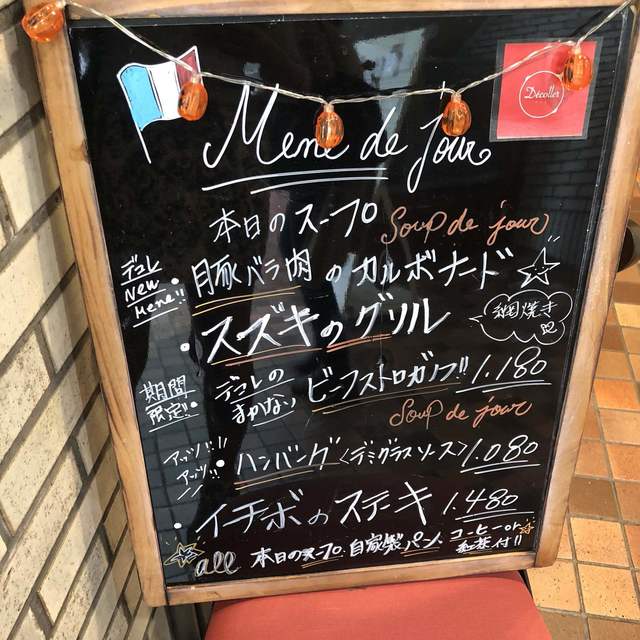 Décoller
Mene de Jour
本日のスープ Soup de jour
デコレ New Mene!! ・豚バラ肉のカルボナード
・スズキのグリル 網焼き
期間限定!! ・デコレのまかない ビーフストロガノフ!! 1.180
Soup de jour
アッツ!! アッツ!! ・ハンバーグ〈デミグラスソース〉1.080
・イチボのステーキ 1.480
all 本日のスープ、自家製パン、コーヒーor紅茶付!!